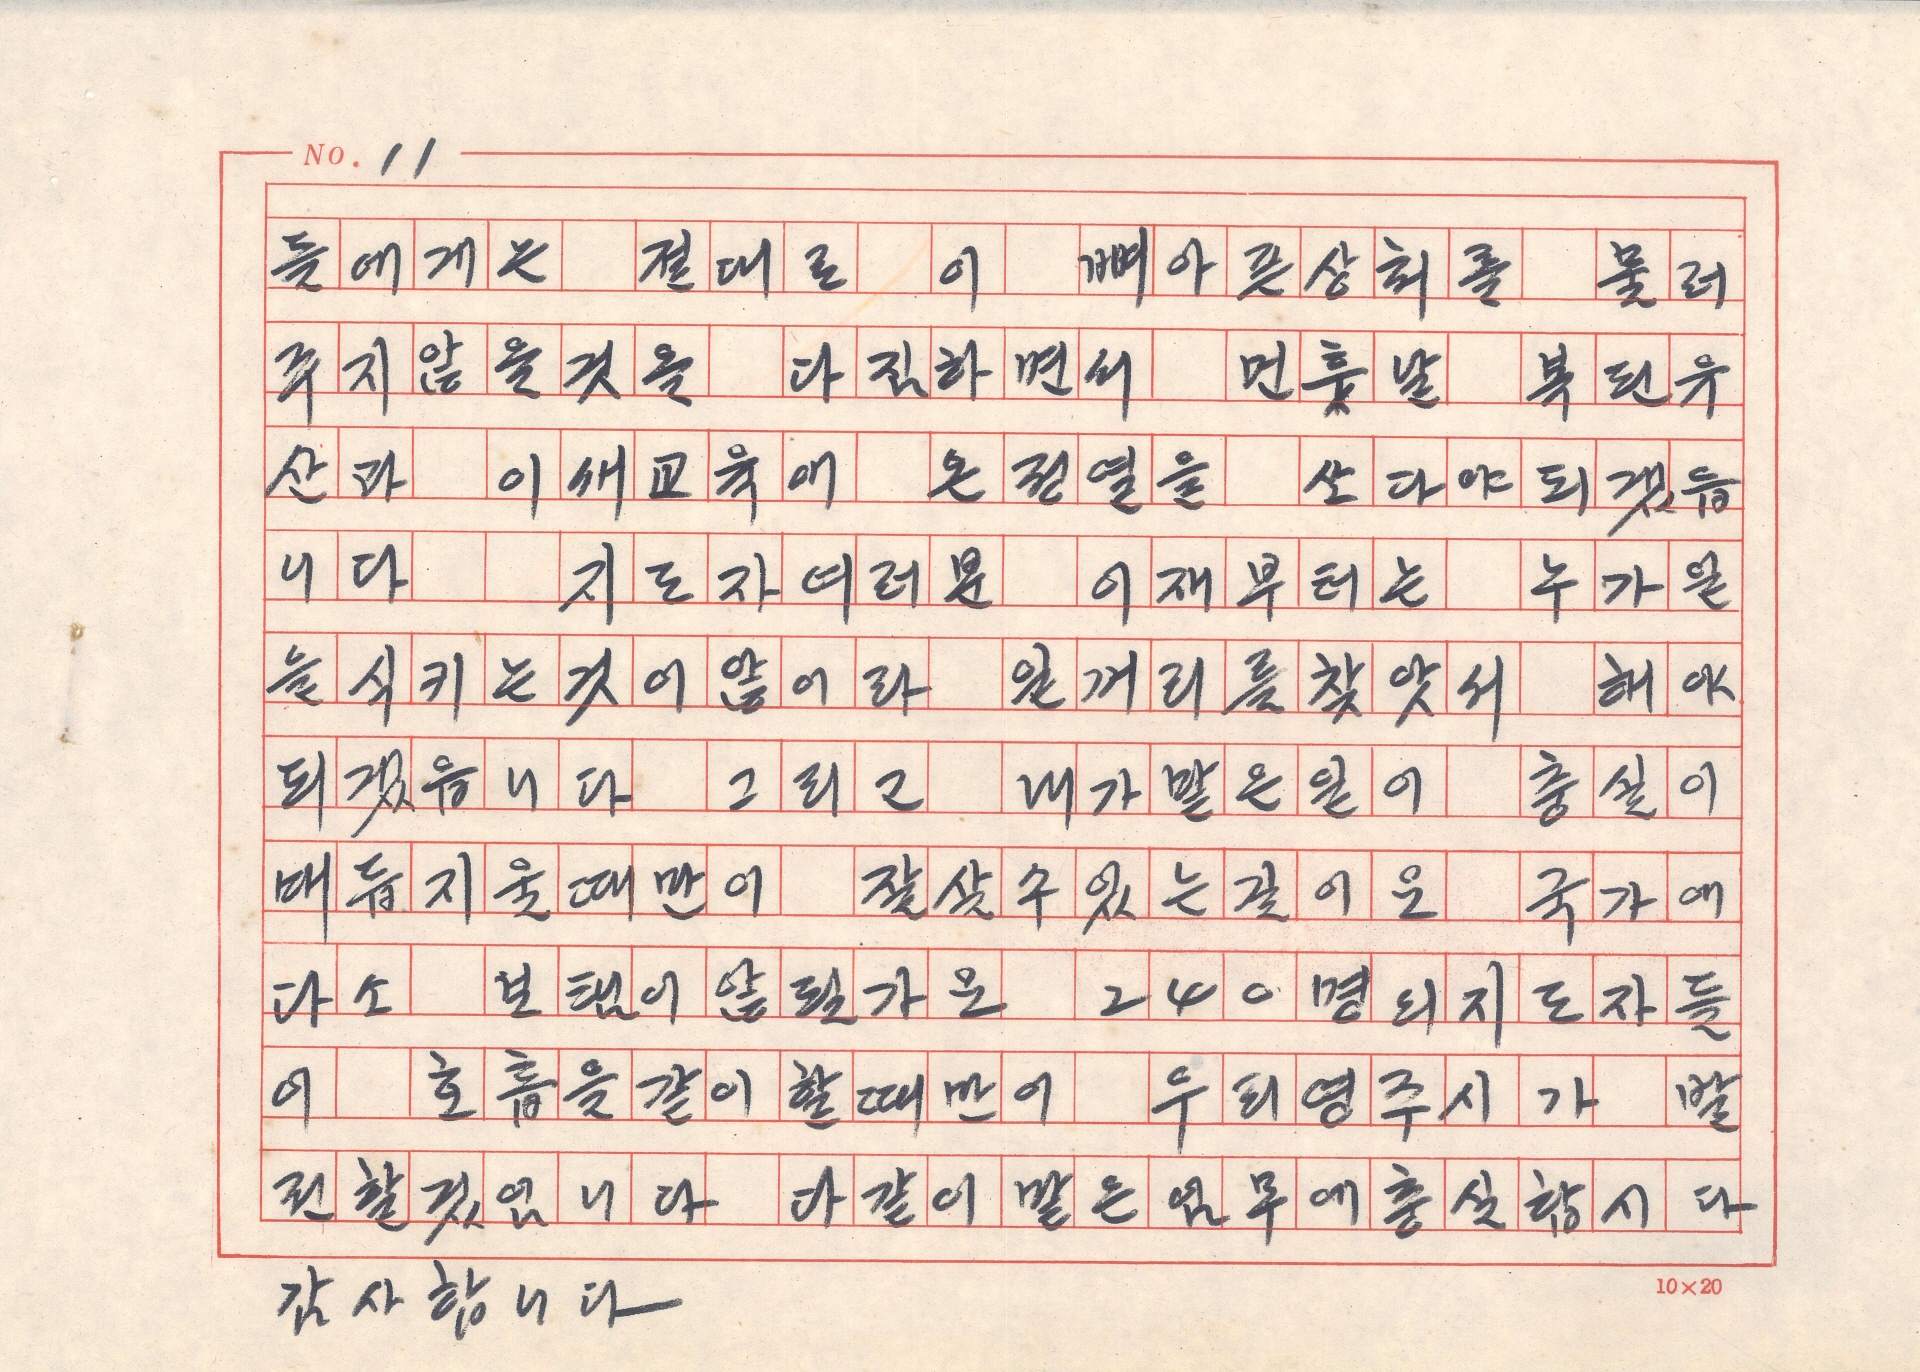 No. 11
들에게는 절대로 이 뼈아픈상회를 물러
주지않을것을 다짐하면서 먼훗날 복된유
산과 이새교육애 온정열을 쏘다야되겠습
니다 지도자여러분 이재부터는 누가일
을식키는것이않이라 일꺼리를찾앗서 해야
되겠읍니다 그리고 내가맡은일이 충실이
배듭지울때만이 잘살수있는길이오 국가애
다소 보탬이않될가요 240명의지도자들
이 호흡을같이할때만이 우리영주시가 발
전할것입니다 다같이맡은임무에충실합시다
감사합니다
10×20